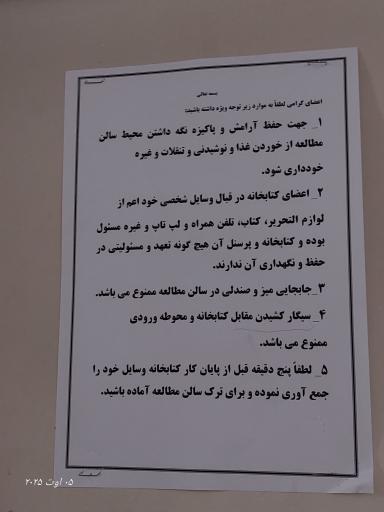 بسمه تعالی
اعضای گرامی لطفاً به موارد زیر توجه ویژه داشته باشید:
۱_ جهت حفظ آرامش و پاکیزه نگه داشتن محیط سالن
مطالعه از خوردن غذا و نوشیدنی و تنقلات و غیره
خودداری شود.
۲_ اعضای کتابخانه در قبال وسایل شخصی خود اعم از
لوازم التحریر، کتاب، تلفن همراه و لپ تاپ و غیره مسئول
بوده و کتابخانه و پرسنل آن هیچ گونه تعهد و مسئولیتی در
حفظ و نگهداری آن ندارند.
۳_جابجایی میز و صندلی در سالن مطالعه ممنوع می باشد.
۴_ سیگار کشیدن مقابل کتابخانه و محوطه ورودی
ممنوع می باشد.
۵_ لطفاً پنج دقیقه قبل از پایان کار کتابخانه وسایل خود را
جمع آوری نموده و برای ترک سالن مطالعه آماده باشید.
۰۵ اوت ۲۰۲۵